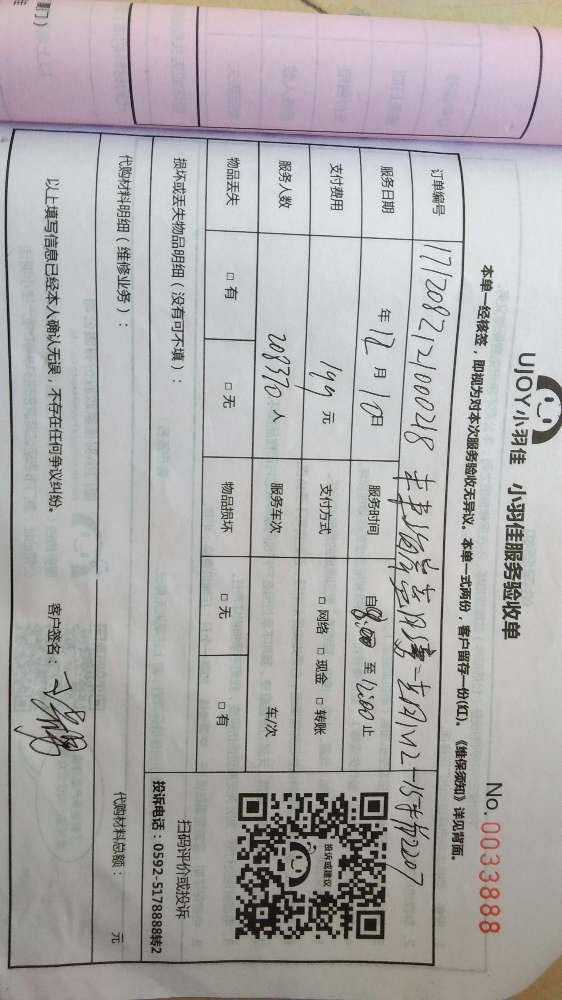 UJOY小羽佳 小羽佳服务验收单
No. 0033888
本单一经核签，即视为对本次服务验收无异议。本单一式两份，客户留存一份(红)。《维保须知》详见背面。
订单编号 1712082121000218
服务日期 年 12 月 10日 服务时间 自8:00 至 12:00 止
支付费用 199 元 支付方式 □ 网络 □ 现金 □ 转账
服务人数 208370 人 服务车次 车/次
物品丢失 □ 有 □ 无 物品损坏 □ 无 □ 有
投诉或建议
扫码评价或投诉
投诉电话：0592-5178888转2
损坏或丢失物品明细（没有可不填）：
代购材料明细（维修业务）： 代购材料总额： 元
以上填写信息已经本人确认无误，不存在任何争议纠纷。 客户签名：